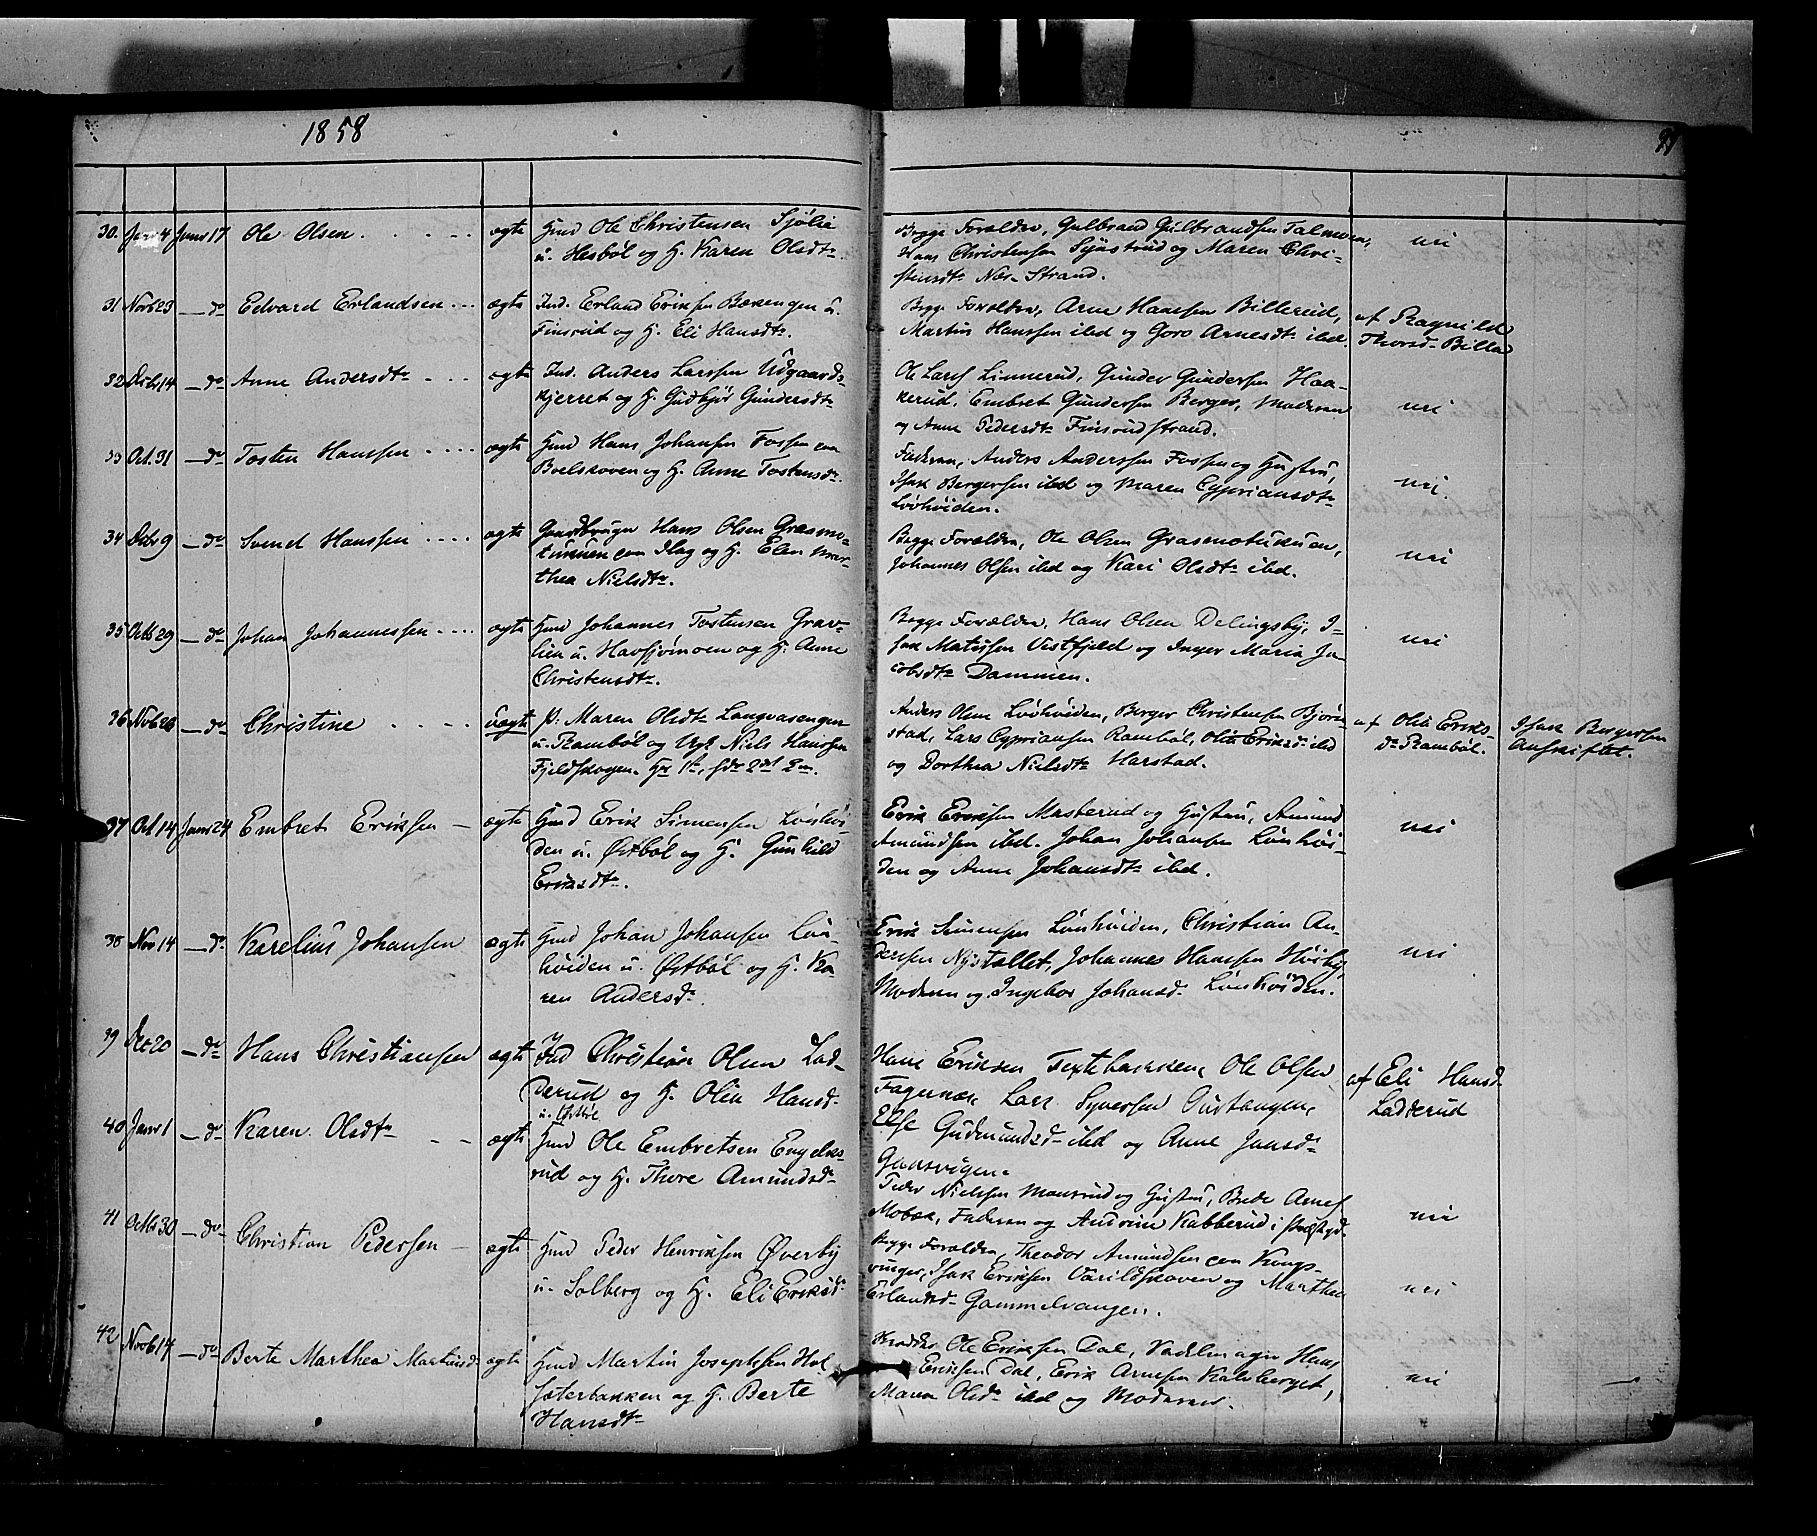 1858
97
30. Janr 4 Janr 17 Ole Olsen ægte Hmd Ole Christensen Sjölie
u. Hesböl og H. Karen Olsdtr
Begge Forældre, Gulbrand Gulbrandsen Talmoen,
Hans Christensen Sjustrud og Maren Chri-
stensdtr Næs-Strand.
nei
31 Novb 23 – do Edvard Erlandsen ægte Ind. Erland Eriksen Bækengen u.
Finsrud og H. Eli Hansdtr.
Begge Forældre, Arne Hansen Billerud,
Martin Hanssen ibd og Goro Arnesdtr ibd.
af Ragnild
Thorsd. Billa
32 Decbr 14 – do Anne Andersdtr ægte Ind. Anders Larssen Udgaards-
kjerret og H. Gudbjör Gundersdtr
Ole Larss Linnerud, Gunder Gundersen Haa-
kerud, Embret Gundersen Berger, Moderen
og Anne Pedersdtr Finsrudstrand.
nei
33 Oct. 31 – do Tosten Hanssen ægte Hmd Hans Johansen Fossen
Boelskoven og H. Anne Tostensdtr.
Faderen, Anders Anderssen Fossen og Hustru,
Isak Bergersen ibd og Maren Cypriansdtr
Lövhöiden.
nei.
34 Decbr 9 – do Svend Hanssen ægte Gaardbruger Hans Olsen Græsmo-
tunnen og H. Elen Mar-
thea Nielsdtr.
Begge Forældre, Ole Olsen Græsmotunnen,
Johannes Olsen ibd og Kari Olsdtr ibd.
nei
35 Octb 29 – do Johan Johannessen ægte Hmd Johannes Tostensen Grav-
lien u. Havsjömoen og H. Anne
Christensdtr.
Begge Forældre, Hans Olsen Delingsby, I-
sak Matissen Vestfjeld og Inger Maria Ja-
cobsdtr Dammen.
nei
36 Novb 23 – do Christine uægte P. Maren Olsdtr Langvasenger
u. Ramböl og Ugk. Niels Hanssen
Fjeldskogen. H. 1st, hds 2det Lm.
Anders Olsen Lövhöiden, Berger Christensen Bjørn-
stad, Lars Cypriansen Ramböl, Olia Eriksd. ibd
og Dorthea Nielsdtr Harstad.
af Olia Eriks-
dr Ramböl.
Isak Bergersen
Aaskiftet.
37 Oct 14 Janr 24 Embret Eriksen ægte Hmd Erik Simensen Lövhöi-
den u. Østböl og H. Gunhild
Eriksdtr.
Erik Eriksen Masterud og Hustru, Amund
Amundsen ibd. Johan Johansen Lövhöi-
den og Anne Johansdtr ibd.
nei
38 Nov 14 – do Karelius Johansen ægte Hmd Johan Johansen Löv-
höiden u. Østböl og H. Ka-
ren Andersd.
Erik Simensen Lövhöiden, Christian An-
dersen Nystallet, Johannes Hansen Høiby,
Moderen og Ingebor Johansd. Lövhöiden.
nei
39 Dec 20 – do Hans Christiansen ægte Ind Christian Olsen Lad-
derud og H. Olia Hansd.
Hans Eriksen Textebakken, Ole Olsen
Fagernæs Lars Syversen Austangen,
Else Gudmundsd. ibd og Anne Jansd.
Gaasvigen.
af Eli Hansd.
Ladderud
40 Janr 1 – do Karen Olsdtr ægte Hmd Ole Embretsen Engelns-
rud og H. Thore Amundsd.
Peder Nielsen Monsrud og Hustru, Brede Arnes
Mobæk, Faderen og Andrine Kabberud i Præstgd.
nei
41 Octbr 30 – do Christian Pedersen ægte Hmd Peder Henriksen Øverby
u. Solberg og H. Eli Eriksd.
Begge Forældre, Theodor Amundsen Kongs-
vinger, Isak Eriksen Varildskoven og Marthea
Erlandsd. Gammelvangen.
nei
42 Novb 14 – do Berte Marthea Martinsd. ægte Hmd Martin Josephsen Hol-
sæterbakken og H. Berte
Hansdtr
Ole Eriksen Dal, Hans
Eriksen Dal, Erik Arnesen Kalvberget,
Maren Olsdr ibd og Moderen.
nei